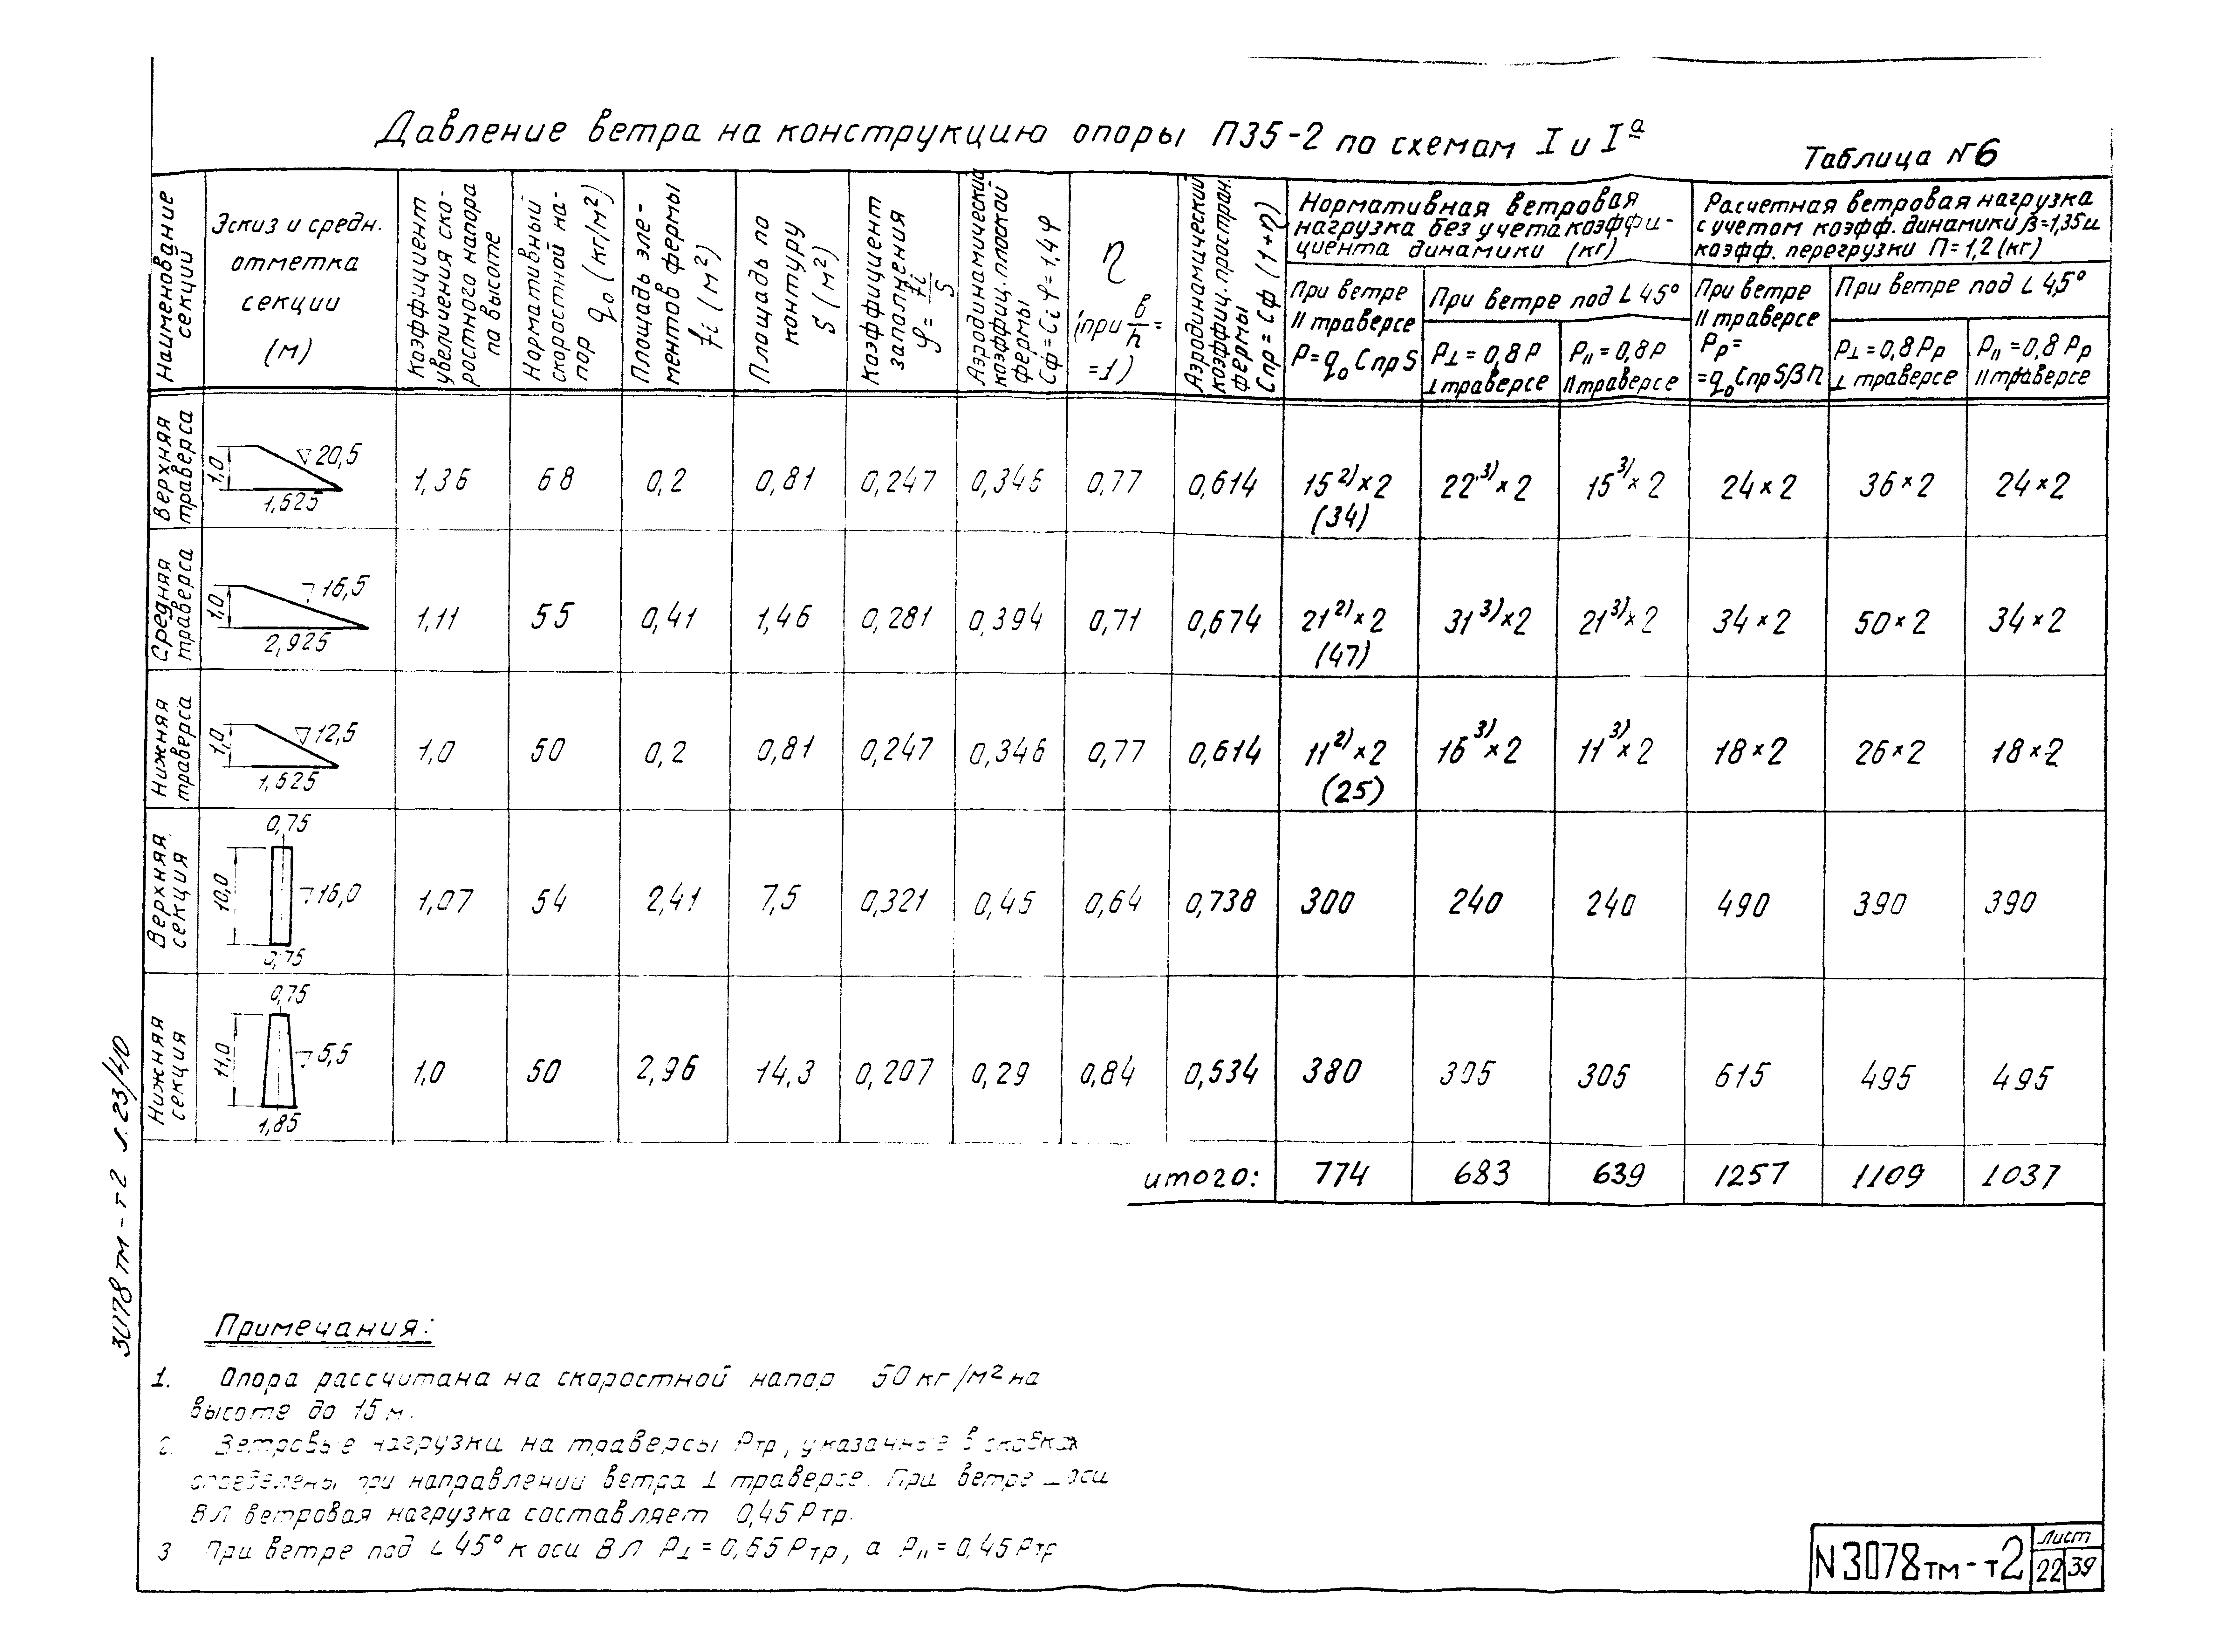 Давление ветра на конструкцию опоры П35-2 по схемам I и Iª
Таблица №6
Наименование секции
Эскиз и средн. отметка секции (м)
Коэффициент увеличения скоростного напора по высоте
Нормативный скоростной напор q₀ (кг/м²)
Площадь элементов фермы fi (м²)
Площадь по контуру S (м²)
Коэффициент заполнения φ = fi/S
Аэродинамический коэффиц. плоской фермы Cф = Ci φ = 1,4φ
η (при в/h = =1)
Аэродинамический коэффиц. простран. фермы Спр = Cф (1+η)
Нормативная ветровая нагрузка без учета коэффи-
циента динамики (кг)
При ветре II траверсе P=q₀ Cпр S
При ветре под L 45°
P⊥ = 0,8P ⊥ траверсе
P₁₁ = 0,8P II траверсе
Расчетная ветровая нагрузка
с учетом коэфф. динамики β=1,35 и
коэфф. перегрузки П = 1,2 (кг)
При ветре II траверсе Pр = =q₀ Cпр S β П
При ветре под L 45°
P⊥ = 0,8 Pр ⊥ траверсе
P₁₁ = 0,8 Pр II траверсе
Верхняя траверса 1,0 1,525 20,5 1,36 68 0,2 0,81 0,247 0,346 0,77 0,614 15²⁾×2 (34) 22³⁾×2 15³⁾×2 24×2 36×2 24×2
Средняя траверса 1,0 2,925 16,5 1,11 55 0,41 1,46 0,281 0,394 0,71 0,674 21²⁾×2 (47) 31³⁾×2 21³⁾×2 34×2 50×2 34×2
Нижняя траверса 1,0 1,525 12,5 1,0 50 0,2 0,81 0,247 0,346 0,77 0,614 11²⁾×2 (25) 16³⁾×2 11³⁾×2 18×2 26×2 18×2
Верхняя секция 0,75 10,0 16,0 0,75 1,07 54 2,41 7,5 0,321 0,45 0,64 0,738 300 240 240 490 390 390
Нижняя секция 0,75 11,0 5,5 1,85 1,0 50 2,96 14,3 0,207 0,29 0,84 0,534 380 305 305 615 495 495
итого: 774 683 639 1257 1109 1037
Примечания:
1. Опора рассчитана на скоростной напор 50 кг/м² на
высоте до 15 м.
2. Ветровые нагрузки на траверсы Pтр, указанные в скобках
определены при направлении ветра ⊥ траверсе. При ветре ⊥ оси
ВЛ ветровая нагрузка составляет 0,45 Pтр.
3 При ветре под L 45° к оси ВЛ P⊥ = 0,65 Pтр, а P₁₁ = 0,45 Pтр
3078тм-т2 л.23/40
N3078тм-т2
Лист
22 39